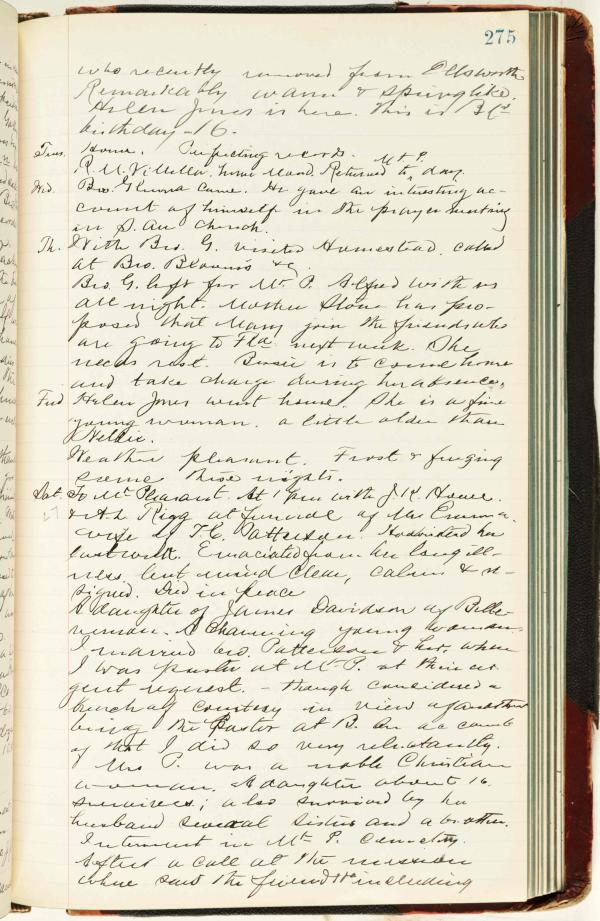 275
who recently removed from Ellsworth
Remarkably warm & springlike.
Helen Jones is here. This is B
birthday - 16.
Tues. Home. Perfecting records.
Mt P.
R. M. Home Returned to day.
Wed. Bro. came. He gave an interesting ac-
count of himself in the prayer meeting
in church.
Th. With Bro. G. visited Homestead, called
at Bro.
Bro. G. left for Mt P. Alfred with us
all night. Mother Stone has pro-
posed that Mary join the friends who
are going to Fla. next week. She
needs rest. Bessie is to come home
and take charge during her absence.
Frid Helen Jones went home. She is a fine
young woman. a little older than
Nellie.
Weather pleasant. Frost & freezing
some these nights.
Sat To Mt Pleasant. At 1 pm with J. K. House
27 & A. L. Rigg at funeral of Mrs Emma
wife of T. C. Patterson. Had visited her
last week. Emaciated from her long ill-
ness, but mind clear, calm & re-
signed. Died in peace
A daughter of James Davidson of Belle-
A charming young woman.
I married bro. Patterson & her, when
I was pastor at Mt P. at their ur
gent request. - though considered a
breach of courtesy in view of another
being the Pastor at B. On account
of that I did so very reluctantly.
Mrs P. was a noble Christian
woman. A daughter about 16.
survives; also survived by her
husband several sisters and a brother.
Interment in Mt P. cemetery.
After a call at the mission
where saw the friends including